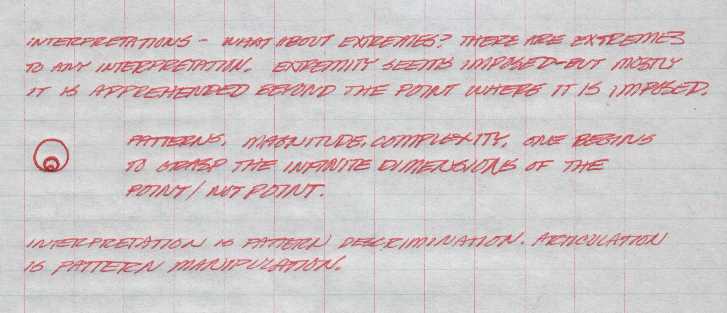 INTERPRETATIONS - WHAT ABOUT EXTREMES? THERE ARE EXTREMES
TO ANY INTERPRETATION. EXTREMITY SEEMS IMPOSED-BUT MOSTLY
IT IS APPREHENDED BEYOND THE POINT WHERE IT IS IMPOSED.
PATTERNS, MAGNITUDE, COMPLEXITY, ONE BEGINS
TO GRASP THE INFINITE DIMENSIONS OF THE
POINT/NOT POINT.
INTERPRETATION IS PATTERN DESCRIMINATION. ARTICULATION
IS PATTERN MANIPULATION.